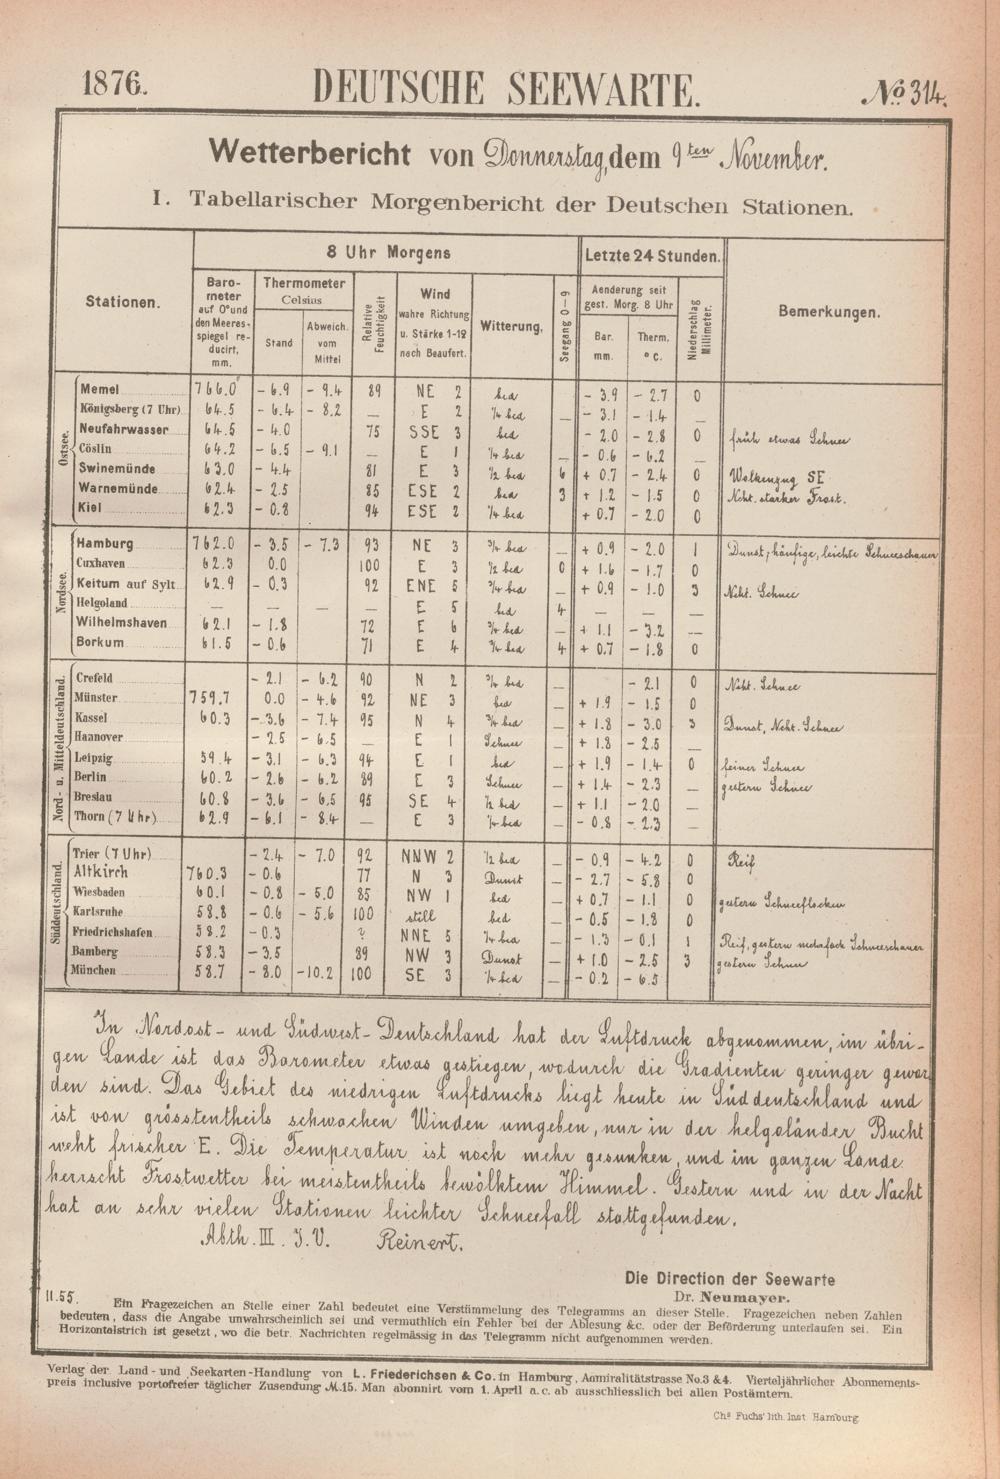 1876. DEUTSCHE SEEWARTE. No 314.
Wetterbericht von Donnerstag, dem 9ten November.
I. Tabellarischer Morgenbericht der Deutschen Stationen.
Stationen. 8 Uhr Morgens Letzte 24 Stunden. Bemerkungen.
Barometer auf 0° und den Meeresspiegel reducirt, mm. Thermometer Celsius Stand Abweich. vom Mittel Relative Feuchtigkeit Wind wahre Richtung u. Stärke 1-12 nach Beaufort. Witterung. Seegang 0-9 Aenderung seit gest. Morg. 8 Uhr Bar. mm. Therm. °C. Niederschlag Millimeter.
Ostsee.
Memel 766.0 -6.9 -9.4 89 NE 2 bed -3.9 -2.7 0
Königsberg (7 Uhr) 64.5 -6.4 -8.2 — E 2 1/4 bed — -3.1 -1.4 —
Neufahrwasser 64.5 -4.0 75 SSE 3 bed -2.0 -2.8 0 früh etwas Schnee
Cöslin 64.2 -6.5 -9.1 E 1 1/4 bed — -0.6 -6.2 —
Swinemünde 63.0 -4.4 81 E 3 1/2 bed 6 +0.7 -2.4 0 Wolkenzug SE
Warnemünde 62.4 -2.5 85 ESE 2 bed 3 +1.2 -1.5 0 Ncht. starker Frost.
Kiel 62.3 -0.8 94 ESE 2 1/4 bed +0.7 -2.0 0
Nordsee.
Hamburg 762.0 -3.5 -7.3 93 NE 3 3/4 bed — +0.9 -2.0 1 Dunst, häufige, leichte Schneeschauer
Cuxhaven 62.3 0.0 100 E 3 1/2 bed 0 +1.6 -1.7 0
Keitum auf Sylt 62.9 -0.3 92 ENE 5 3/4 bed — +0.9 -1.0 3 Ncht. Schnee
Helgoland — — — — E 5 bed 4 — — —
Wilhelmshaven 62.1 -1.8 72 E 6 3/4 bed — +1.1 -3.2 —
Borkum 61.5 -0.6 71 E 4 3/4 bed 4 +0.7 -1.8 0
Nord- u. Mitteldeutschland.
Crefeld -2.1 -6.2 90 N 2 3/4 bed — -2.1 0 Ncht. Schnee
Münster 759.7 0.0 -4.6 92 NE 3 bed — +1.9 -1.5 0
Kassel 60.3 -3.6 -7.4 95 N 4 3/4 bed — +1.8 -3.0 3 Dunst, Ncht. Schnee
Hannover -2.5 -6.5 — E 1 Schnee — +1.8 -2.5 —
Leipzig 59.4 -3.1 -6.3 94 E 1 bed — +1.9 -1.4 0 feiner Schnee
Berlin 60.2 -2.6 -6.2 89 E 3 Schnee — +1.4 -2.3 — gestern Schnee
Breslau 60.8 -3.6 -6.5 95 SE 4 1/2 bed — +1.1 -2.0 —
Thorn (7 Uhr) 62.9 -6.1 -8.4 — E 3 1/4 bed — -0.8 -2.3 —
Süddeutschland.
Trier (7 Uhr) -2.4 -7.0 92 NNW 2 1/2 bed — -0.9 -4.2 0 Reif
Altkirch 760.3 -0.6 77 N 3 Dunst — -2.7 -5.8 0
Wiesbaden 60.1 -0.8 -5.0 85 NW 1 bed — +0.7 -1.1 0 gestern Schneeflocken
Karlsruhe 58.8 -0.6 -5.6 100 still bed — -0.5 -1.8 0
Friedrichshafen 58.2 -0.3 ? NNE 5 1/4 bed — -1.3 -0.1 1 Reif, gestern mehrfach Schneeschauer
Bamberg 58.3 -3.5 89 NW 3 Dunst — +1.0 -2.5 3 gestern Schnee
München 58.7 -8.0 -10.2 100 SE 3 1/4 bed — -0.2 -6.5
In Nordost- und Südwest-Deutschland hat der Luftdruck abgenommen, im übri-
gen Lande ist das Barometer etwas gestiegen, wodurch die Gradienten geringer gewor
den sind. Das Gebiet des niedrigen Luftdrucks liegt heute in Süddeutschland und
ist von grösstentheils schwachen Winden umgeben, nur in der helgoländer Bucht
weht frischer E. Die Temperatur ist noch mehr gesunken, und im ganzen Lande
herrscht Frostwetter bei meistentheils bewölktem Himmel. Gestern und in der Nacht
hat an sehr vielen Stationen leichter Schneefall stattgefunden.
Abth. III. I.V. Reinert.
Die Direction der Seewarte
Dr. Neumayer.
11.55.
Ein Fragezeichen an Stelle einer Zahl bedeutet eine Verstümmelung des Telegramms an dieser Stelle. Fragezeichen neben Zahlen
bedeuten, dass die Angabe unwahrscheinlich sei und vermuthlich ein Fehler bei der Ablesung &c. oder der Beförderung unterlaufen sei. Ein
Horizontalstrich ist gesetzt, wo die betr. Nachrichten regelmässig in das Telegramm nicht aufgenommen werden.
Verlag der Land- und Seekarten-Handlung von L. Friederichsen & Co. in Hamburg, Admiralitätstrasse No. 3 & 4. Vierteljährlicher Abonnements-
preis inclusive portofreier täglicher Zusendung M. 15. Man abonnirt vom 1. April a. c. ab ausschliesslich bei allen Postämtern.
Chs Fuchs' lith. Inst. Hamburg